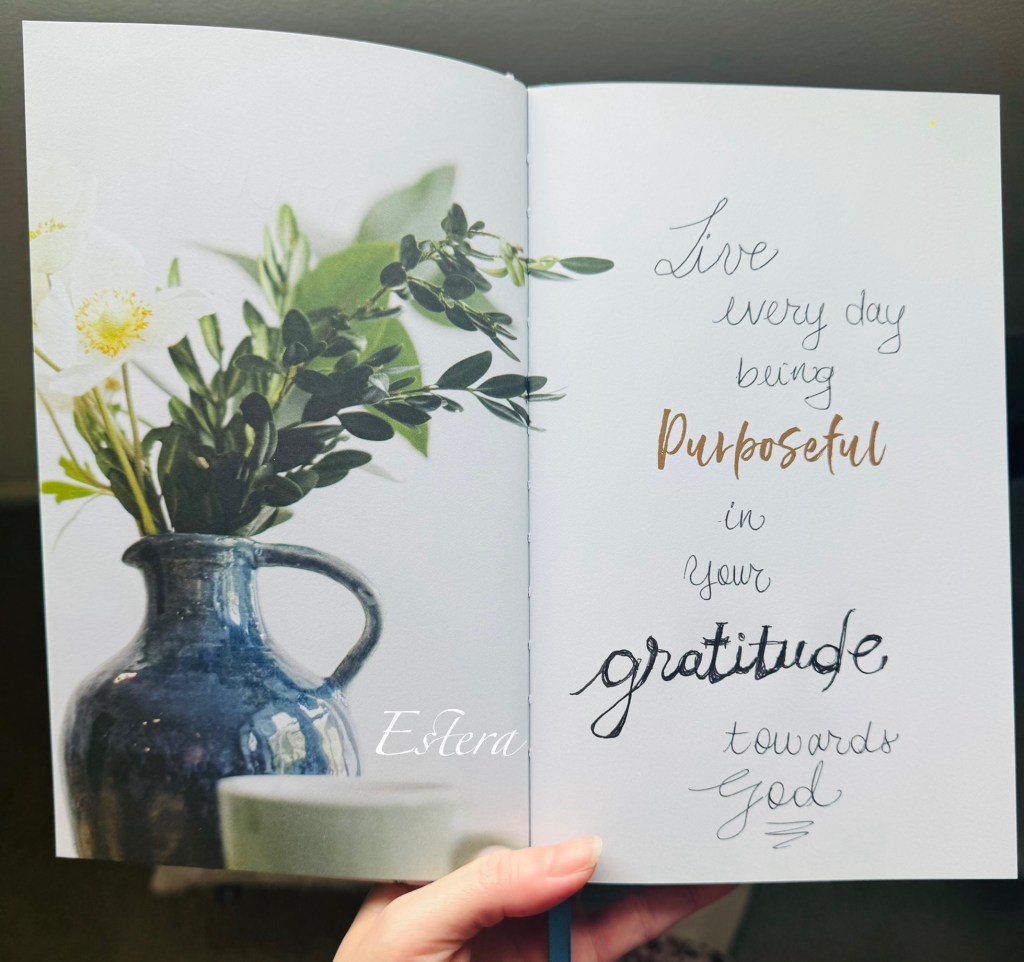 Live
every day
being
Purposeful
in
your
gratitude
towards
God
Estera